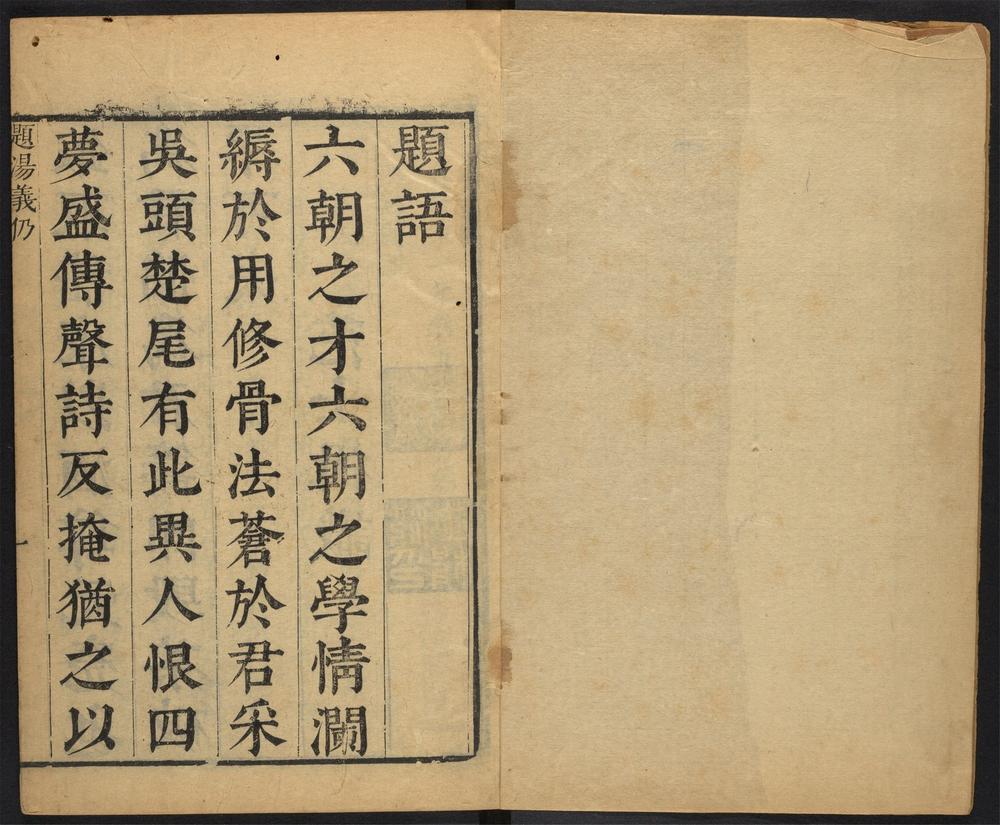 題語
六朝之才六朝之學情瀾
縟於用修骨法蒼於君采
吳頭楚尾有此異人恨四
夢盛傳聲詩反掩猶之以
題湯義仍
一